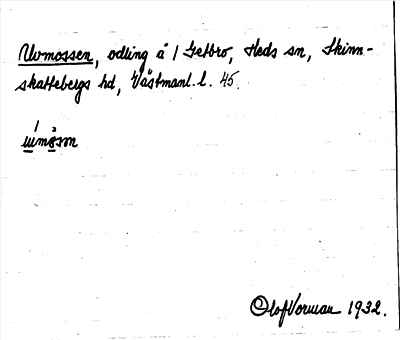 Uvmossen, odling å 1 Getbro, Heds sn, Skinn-
skattebergs hd, Västmanl. l. 45.
uvmåsan
Olof Vorman 1932.